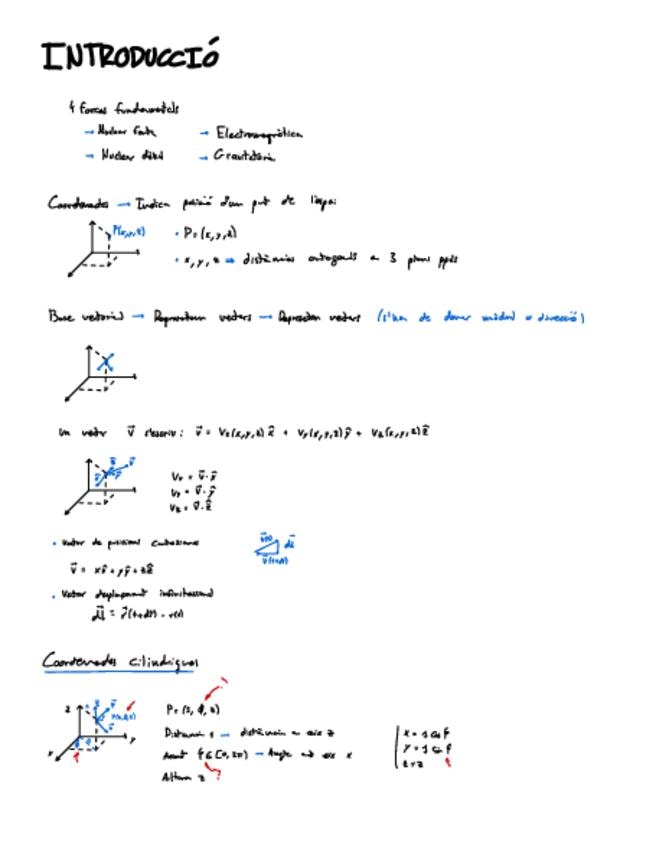 INTRODUCCIÓ
4 Forces fundamentals
→ Nuclear forta → Electromagnètica
→ Nuclear dèbil → Gravitatòria
Coordenades → Indica posició d'un punt de l'espai
P(x,y,z)
• P = (x,y,z)
• x, y, z → distàncies ortogonals a 3 plans
Base vectorial → Representen vectors → Representen vectors (s'han de donar mòdul o direcció)
Un vector v⃗ s'escriu: v⃗ = Vx(x,y,z) x̂ + Vy(x,y,z) ŷ + Vz(x,y,z) ẑ
Vx = v⃗ · x̂
Vy = v⃗ · ŷ
Vz = v⃗ · ẑ
• Vector de posició
= xx̂ + yŷ + zẑ
• Vector desplaçament infinitesimal
dl⃗
Coordenades cilíndriques
z
P = (s, φ, z)
Distància s → distància a eix z
φ ∈ [0, 2π) → Angle eix x
Altura z
x y
x = s cos φ
y = s
z = z
?